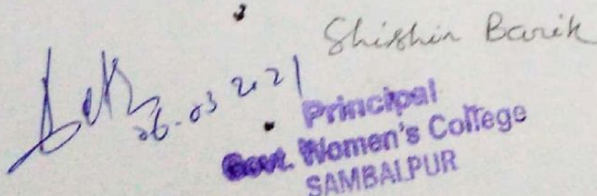 Shishir Barik
26.03.2021
Principal
Govt. Women's College
SAMBALPUR